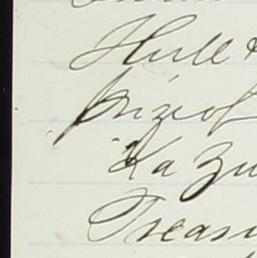 Hull &
prize of
"Kazu
Treasu